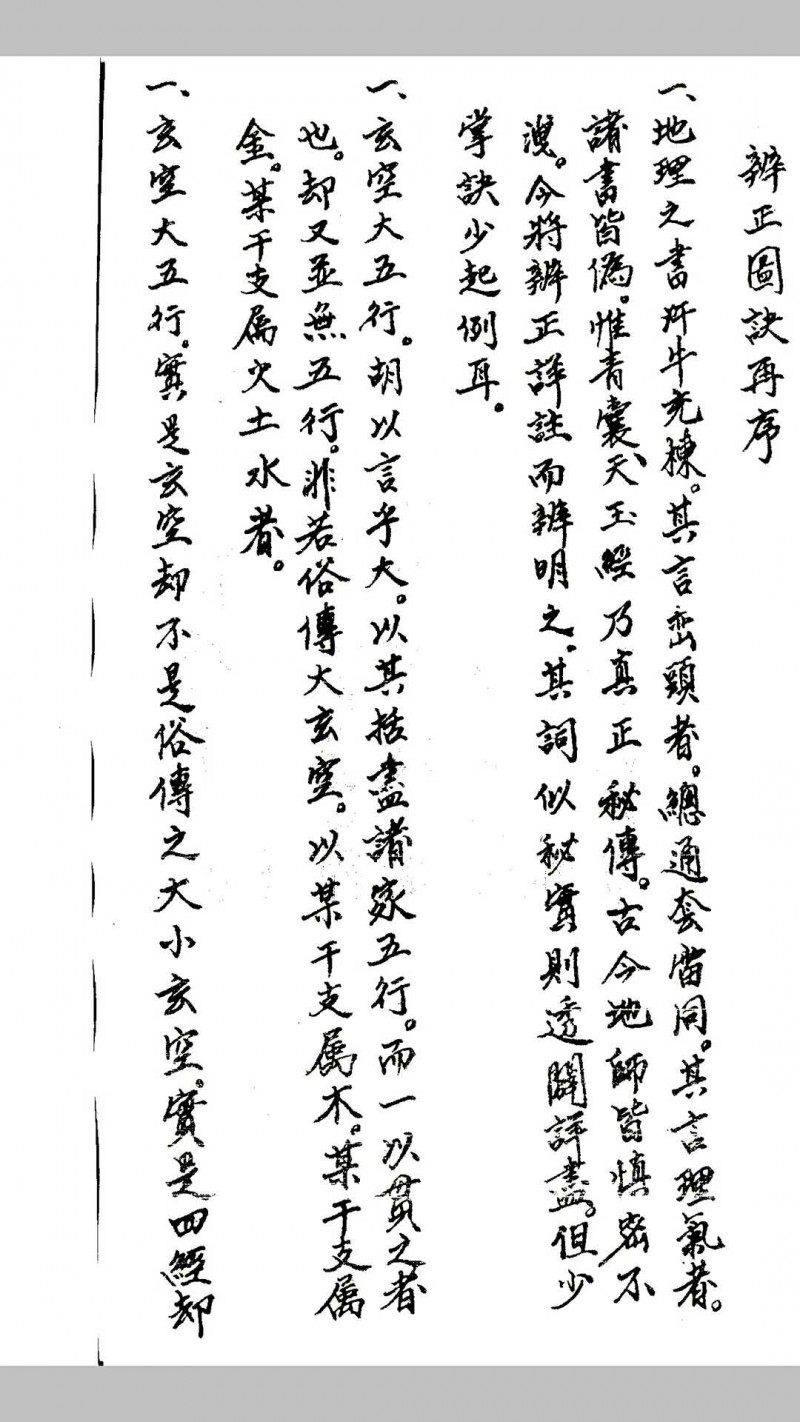 辨正圖訣再序
一、地理之書汗牛充棟。其言巒頭者。總通套當同。其言理氣者。
諸書皆偽。惟青囊、天玉經乃真正秘傳。古今地師皆慎密不
洩。今將辨正詳註而辨明之。其詞似秘實則透闢詳盡。但少
掌訣少起例耳。
一、玄空大五行。胡以言乎大。以其括盡諸家五行。而一以貫之者
也。却又並無五行。非若俗傳大玄空。以某干支属木。某干支属
金。某干支属火土水者。
一、玄空大五行。實是玄空却不是俗傳之大小玄空。實是四經却